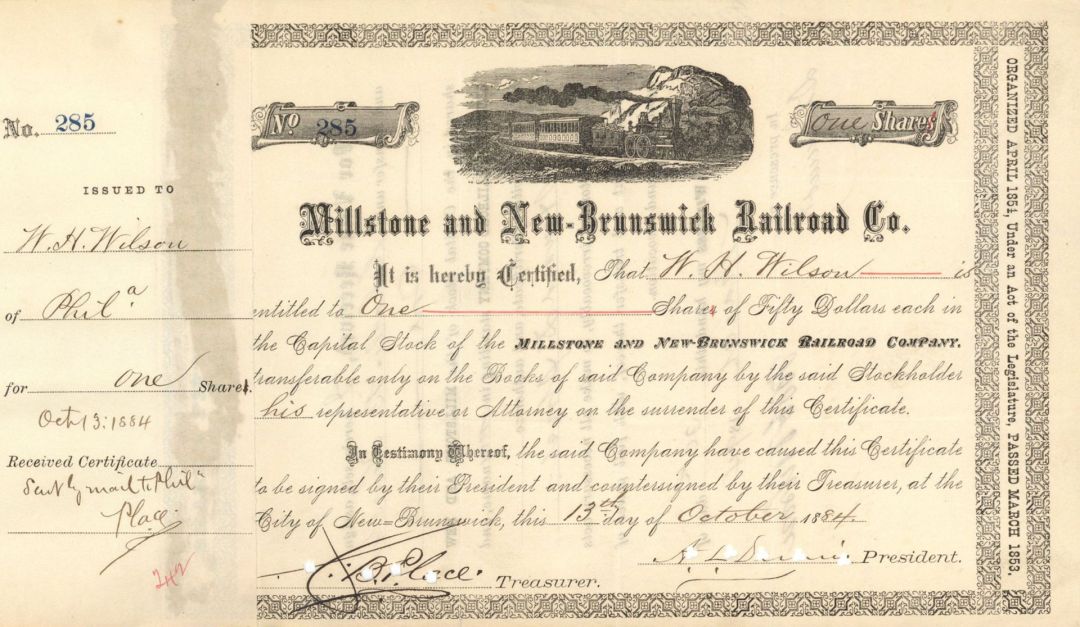 No. 285
ISSUED TO
W. H. Wilson
of Phila
for one Shares.
Oct 13: 1884
Received Certificate
Sent by mail to Phila
Place.
242
No 285
One Shares
Millstone and New-Brunswick Railroad Co.
It is hereby Certified, That W. H. Wilson is
entitled to One Shares of Fifty Dollars each in
the Capital Stock of the MILLSTONE AND NEW-BRUNSWICK RAILROAD COMPANY.
transferable only on the Books of said Company by the said Stockholder
his representative or Attorney on the surrender of this Certificate.
In Testimony Whereof, the said Company have caused this Certificate
to be signed by their President and countersigned by their Treasurer, at the
City of New=Brunswick, this 13th day of October 1884.
Place. Treasurer.
A. L. President.
ORGANIZED APRIL 1854, Under an Act of the Legislature, PASSED MARCH 1853.